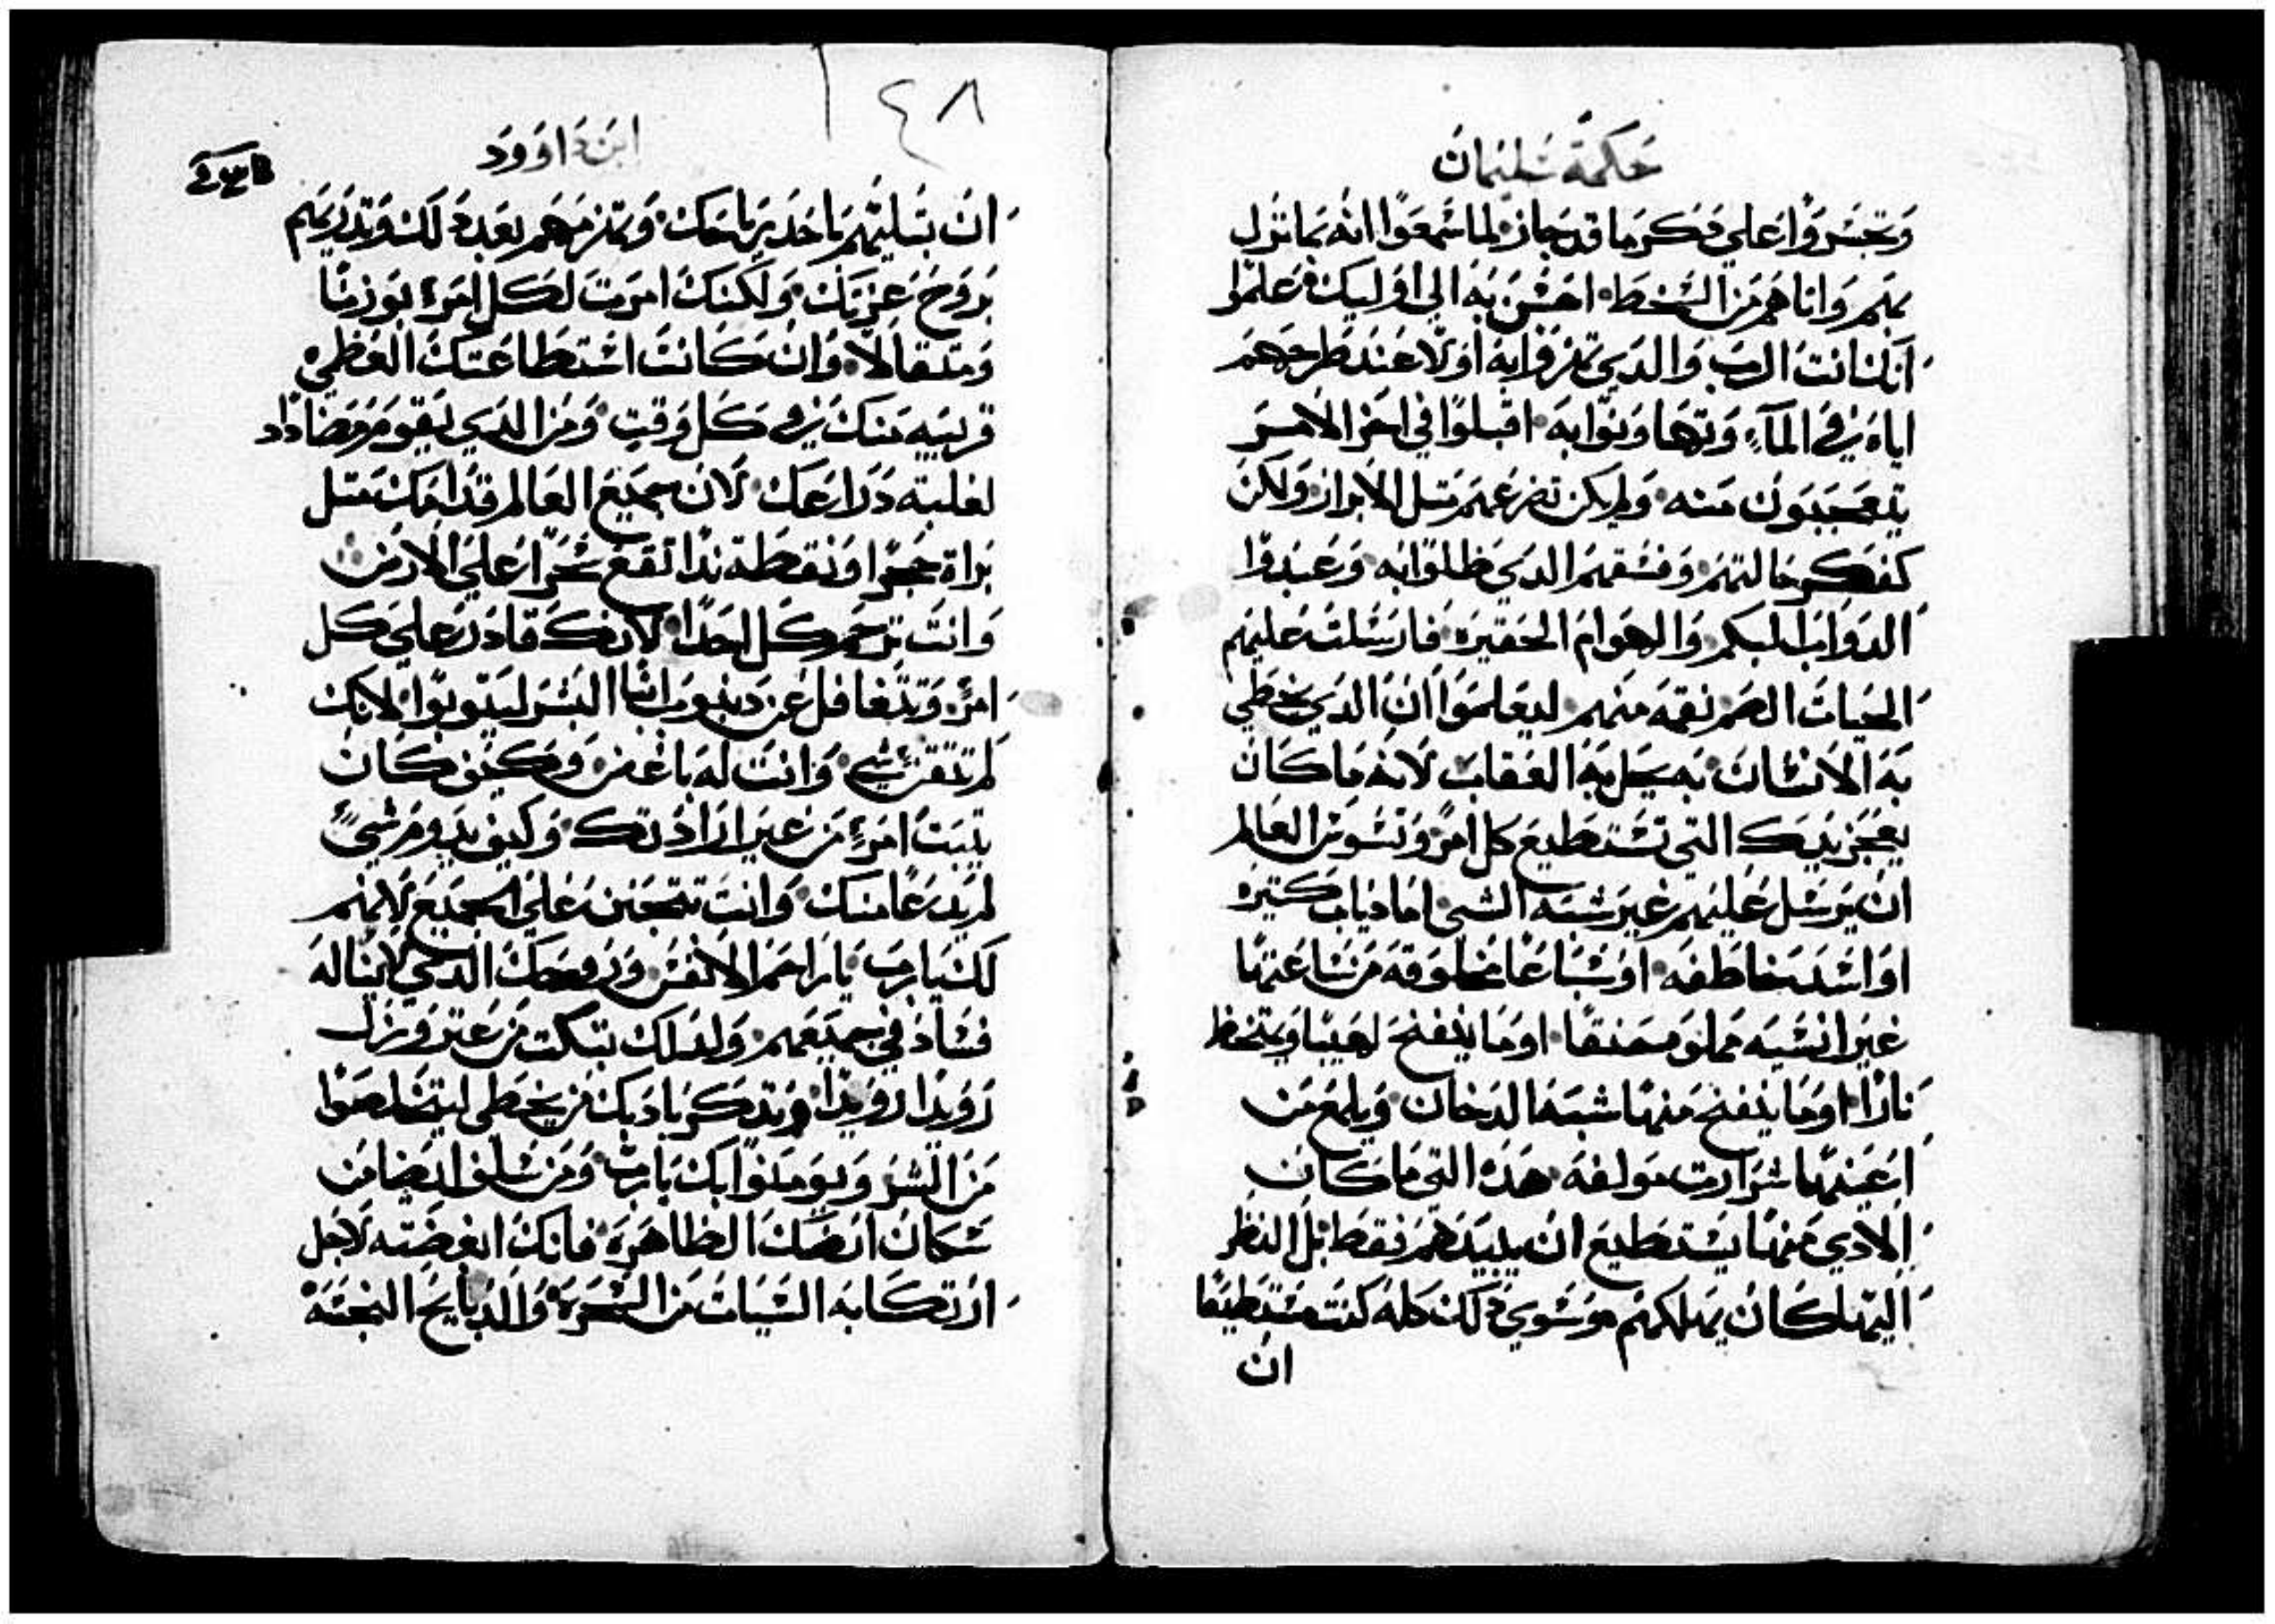 حكمة سليمان
وتحسروا على فكر ما قد جاز لما سمعوا انه بما نزل
بهم واتاهم من السخط احسن به الى اوليك فعلموا
انك انت الرب والدي تهزوا به اولا عند طرحهم
اياه في المآء وتهاونوا به اقبلوا في اخر الامر
يتعجبون منه ولم يكن تضرعهم متل الابرار ولكن
كفكر جهالتهم وفسقهم الدي ظلوا به وعبدوا
الدواب البكم والهوام الحقيرة فارسلت عليهم
الحيات الصم نقمه منهم ليعلموا ان الدي يخطي
به الانسان به يحل به العقاب لانه ما كان
يعجز يديك التي تستطيع كل امر وتسوس العالم
ان يرسل عليهم غير شبه الشي اما دياب كتيره
او اسد خاطفه او سباعا مخلوقه من ساعتها
غير انسيه مملوه حنقا او ما ينفخ لهيبا ويتحظ
نارا او ما ينفخ منها شبه الدخان ويلمع من
اعينها شرارت مولفه هده التي ما كان
الادى منها يستطيع ان يبيدهم فقط بل النظر
اليها كان يهلكهم وسوى دلك كله كنت مستطيعا
ان
٤٨
ابن داوود
ان تسليهم باحد رياحك وتهزمهم بعد دلك وتدريهم
بروح عزتك ولكنك امرت لكل امرء بوزنا
ومتقالا وان كانت استطاعتك العظمي
قريبه منك في كل وقت ومن الدي يقوم مضادد
لغلبته دراعك لان جميع العالم قدامك متل
براة حجرا ونقطة ندا تقع سحرا على الارض
وانت ترحم كل احدا لانك قادر على كل
امر وتتغافل عن دنوب ابنا البشر ليتوبوا لانك
لم تقر شي وانت له باغض وكيف كان
يتبت امرء من غير ارادتك وكيف يدوم شيء
لم يدعا منك وانت تتحنن على الجميع لانهم
لك يا رب يا راحم الانفس وروحك الدي لا يناله
فساد في جميعهم ولدلك تبكت من عتر وزل
رويدا رويدا وتدكر بادبك من يخطى ليتخلصوا
من الشر ويومنوا بك يا رب ومن سلف ايضا من
سكان ارضك الطاهره فانك ابغضته لاجل
ارتكابه السيات من السحرة والدبايح النجسة